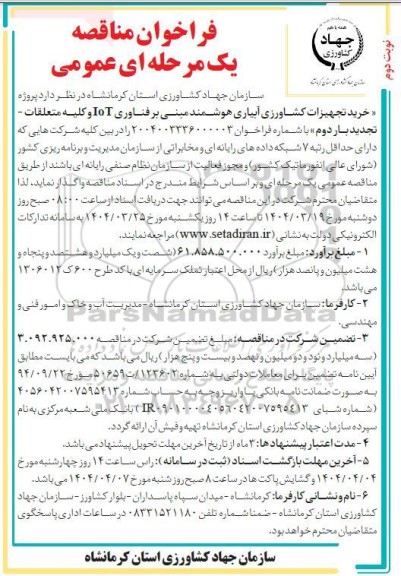 فراخوان مناقصه
یک مرحله ای عمومی
نوبت دوم
جهاد
کشاورزی
سازمان جهاد کشاورزی استان کرمانشاه
سازمان جهاد کشاورزی استان کرمانشاه در نظر دارد پروژه
« خرید تجهیزات کشاورزی آبیاری هوشمند مبنی بر فناوری IoT و کلیه متعلقات -
تجدید بار دوم » با شماره فراخوان ۲۰۰۴۰۰۳۳۳۶۰۰۰۰۰۳ را در بین کلیه شرکت هایی که
دارای حداقل رتبه ۷ شبکه داده های رایانه ای و مخابراتی از سازمان مدیریت و برنامه ریزی کشور
(شورای عالی انفورماتیک کشور) و مجوز فعالیت از سازمان نظام صنفی رایانه ای باشند از طریق
مناقصه عمومی یک مرحله ای و بر اساس شرایط مندرج در اسناد مناقصه واگذار نماید، لذا
متقاضیان محترم شرکت در این مناقصه می توانند جهت دریافت اسناد از ساعت ۰۸:۰۰ صبح روز
دوشنبه مورخ ۱۴۰۴/۰۳/۱۹ تا ساعت ۱۴ روز یکشنبه مورخ ۱۴۰۴/۰۳/۲۵ به سامانه تدارکات
الکترونیکی دولت به نشانی (www.setadiran.ir) مراجعه نمایند.
۱- مبلغ برآورد: مبلغ برآورد ۶۱.۸۵۸.۵۰۰.۰۰۰ (شصت و یک میلیارد و هشتصد و پنجاه و
هشت میلیون و پانصد هزار) ریال از محل اعتبار تملک سرمایه ای با کد طرح ۶۰۰ ک ۱۳۰۶۰۱۲
می باشد.
۲- کارفرما: سازمان جهاد کشاورزی استان کرمانشاه - مدیریت آب و خاک و امور فنی و
مهندسی.
۳- تضمین شرکت در مناقصه: مبلغ تضمین شرکت در مناقصه ۳.۰۹۲.۹۲۵.۰۰۰
(سه میلیارد و نود و دو میلیون و نهصد و بیست و پنج هزار) ریال می باشد که می بایست مطابق
آیین نامه تضمین برای معاملات دولتی به شماره ۱۲۳۴۰۲/ت۵۰۶۵۹هـ مورخ ۹۴/۰۹/۲۲
به صورت ضمانت نامه بانکی یا واریز وجه به حساب شماره ۴۰۵۶۰۴۲۰۰۷۵۹۵۴۱۳
(شماره شبای IR۰۹۰۱۰۰۰۰۴۰۵۶۰۴۲۰۰۷۵۹۵۴۱۳) بانک ملی شعبه مرکزی به نام
سپرده سازمان جهاد کشاورزی استان کرمانشاه تهیه و فیش آن ارائه گردد.
۴- مدت اعتبار پیشنهادها: ۳ ماه از تاریخ آخرین مهلت تحویل پیشنهاد می باشد.
۵- آخرین مهلت بازگشت اسناد (ثبت در سامانه): راس ساعت ۱۴ روز چهارشنبه مورخ
۱۴۰۴/۰۴/۰۴ و گشایش پاکت ها در ساعت ۸ صبح روز شنبه مورخ ۱۴۰۴/۰۴/۰۷ می باشد.
۶- نام و نشانی کارفرما: کرمانشاه - میدان سپاه پاسداران - بلوار کشاورز - سازمان جهاد
کشاورزی استان کرمانشاه - ضمنا شماره تلفن ۰۸۳۳۱۵۲۱۱۸۰ در ساعات اداری پاسخگوی
متقاضیان محترم خواهد بود.
سازمان جهاد کشاورزی استان کرمانشاه
ParsNamadData